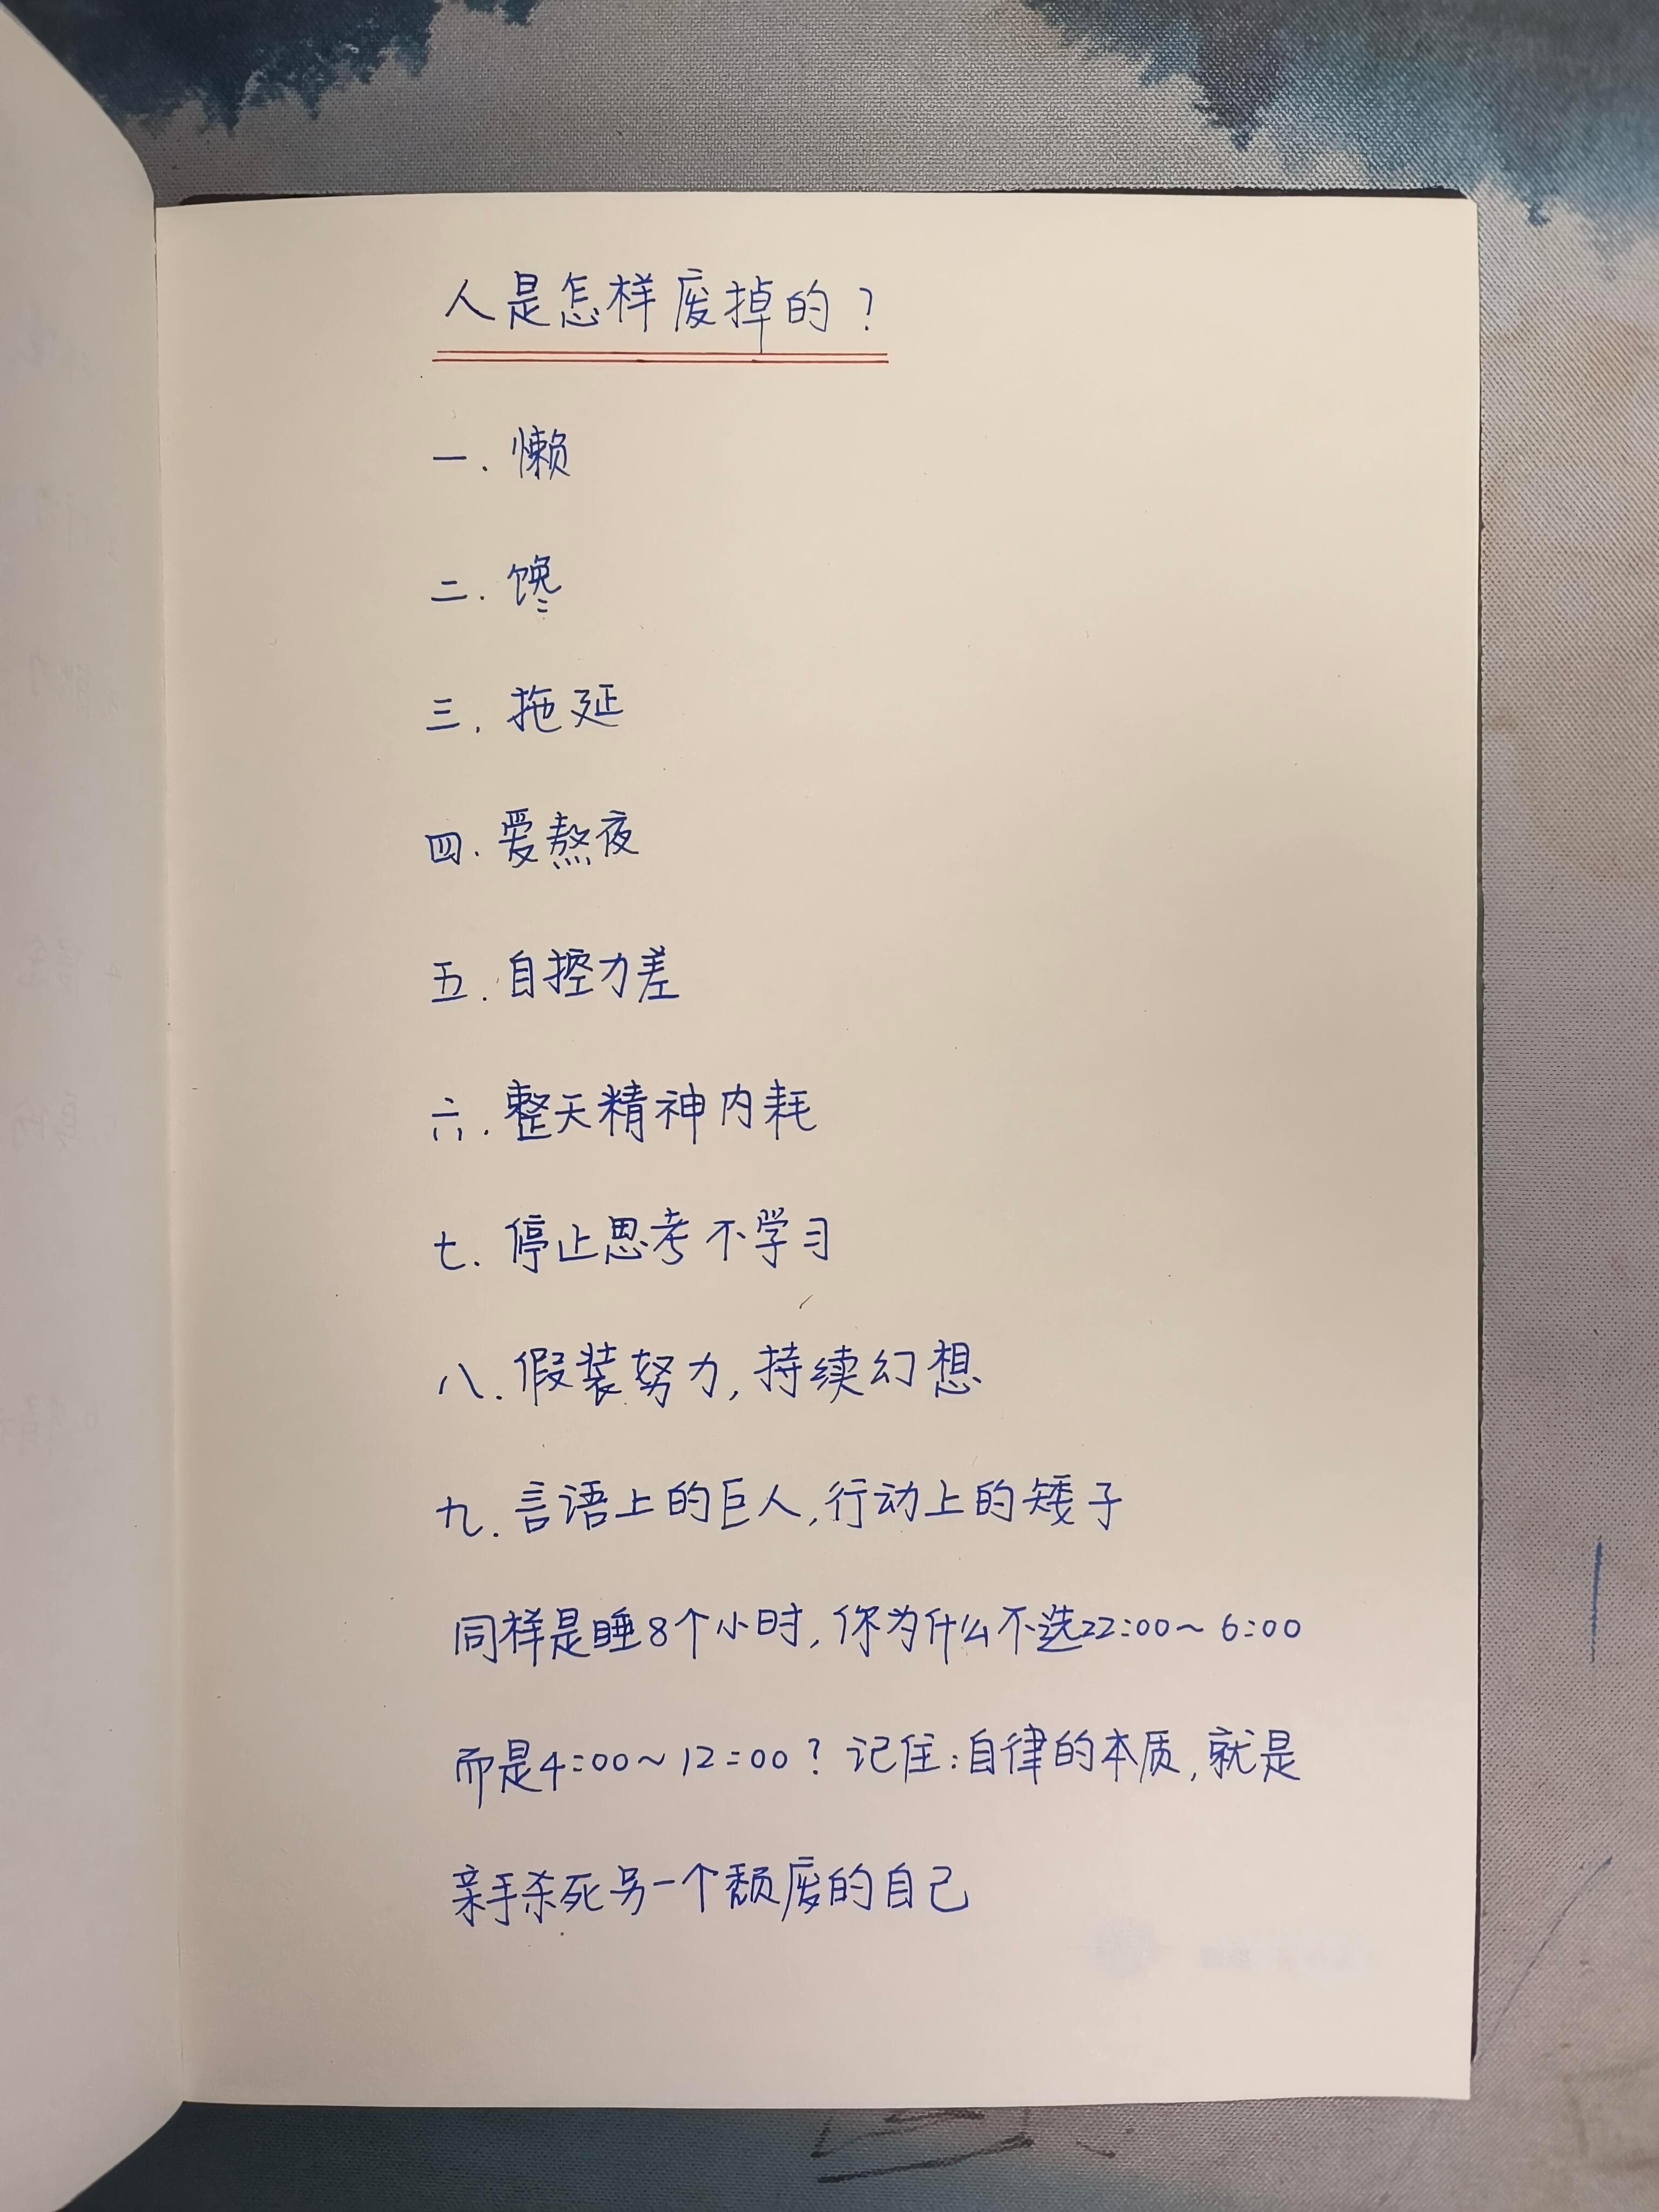 人是怎样废掉的?
一. 懒
二. 馋
三. 拖延
四. 爱熬夜
五. 自控力差
六. 整天精神内耗
七. 停止思考不学习
八. 假装努力,持续幻想
九. 言语上的巨人,行动上的矮子
同样是睡8个小时,你为什么不选22:00~6:00
而是4:00~12:00?记住:自律的本质,就是
亲手杀死另一个颓废的自己